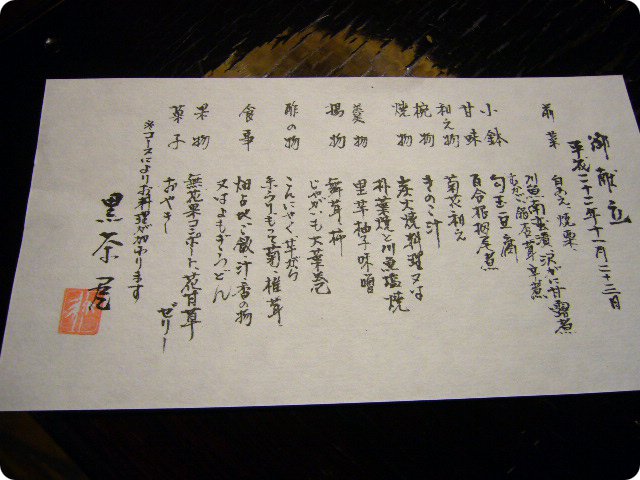 御献立
平成二十二年十一月二十三日
前菜
白和え 焼栗
川魚南蛮漬 沢がに甘露煮
むかご 占地茸 立煮
小鉢
勾玉豆腐
甘味
百合根 煮
和え物
菊花和え
椀物
きのこ汁
焼物
炭火焼料理 又は
朴葉焼と川魚塩焼
羹物
里芋柚子味噌
揚物
舞茸 柿
じゃがいも大葉巻
酢の物
こんにゃく 芋がら
糸うり もって菊 椎茸
食事
畑占地ご飯 汁 香の物
又は よもぎうどん
果物
無花果コンポート 花甘草ゼリー
菓子
おやき
※コースによりお料理が加わります
黒茶屋